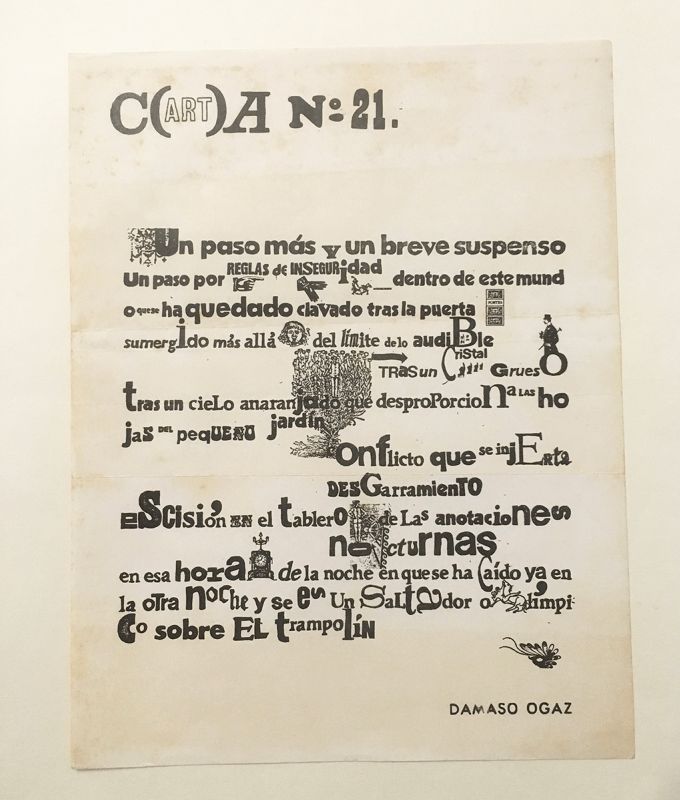 C(ART)A No 21.
Un paso más y un breve suspenso
Un paso por REGLAS de INSEGURidad dentro de este mund
o que se ha quedado clavado tras la puerta
sumergido más allá del límite de lo audiBle
TRAS un Cristal GruesO
tras un cieLo anaranjado que desproPorcioNa LAS ho
jas DEL pequEÑO jardín
cONFlicto que se injErta
DESGarramienTO
eScisión EN el tablerO de Las anotaciones
nocturnas
en esa hora de la noche en que se ha Caído ya en
la oTra noche y se es Un SaLtador olímpi
Co sobre EL trampolíN
DAMASO OGAZ